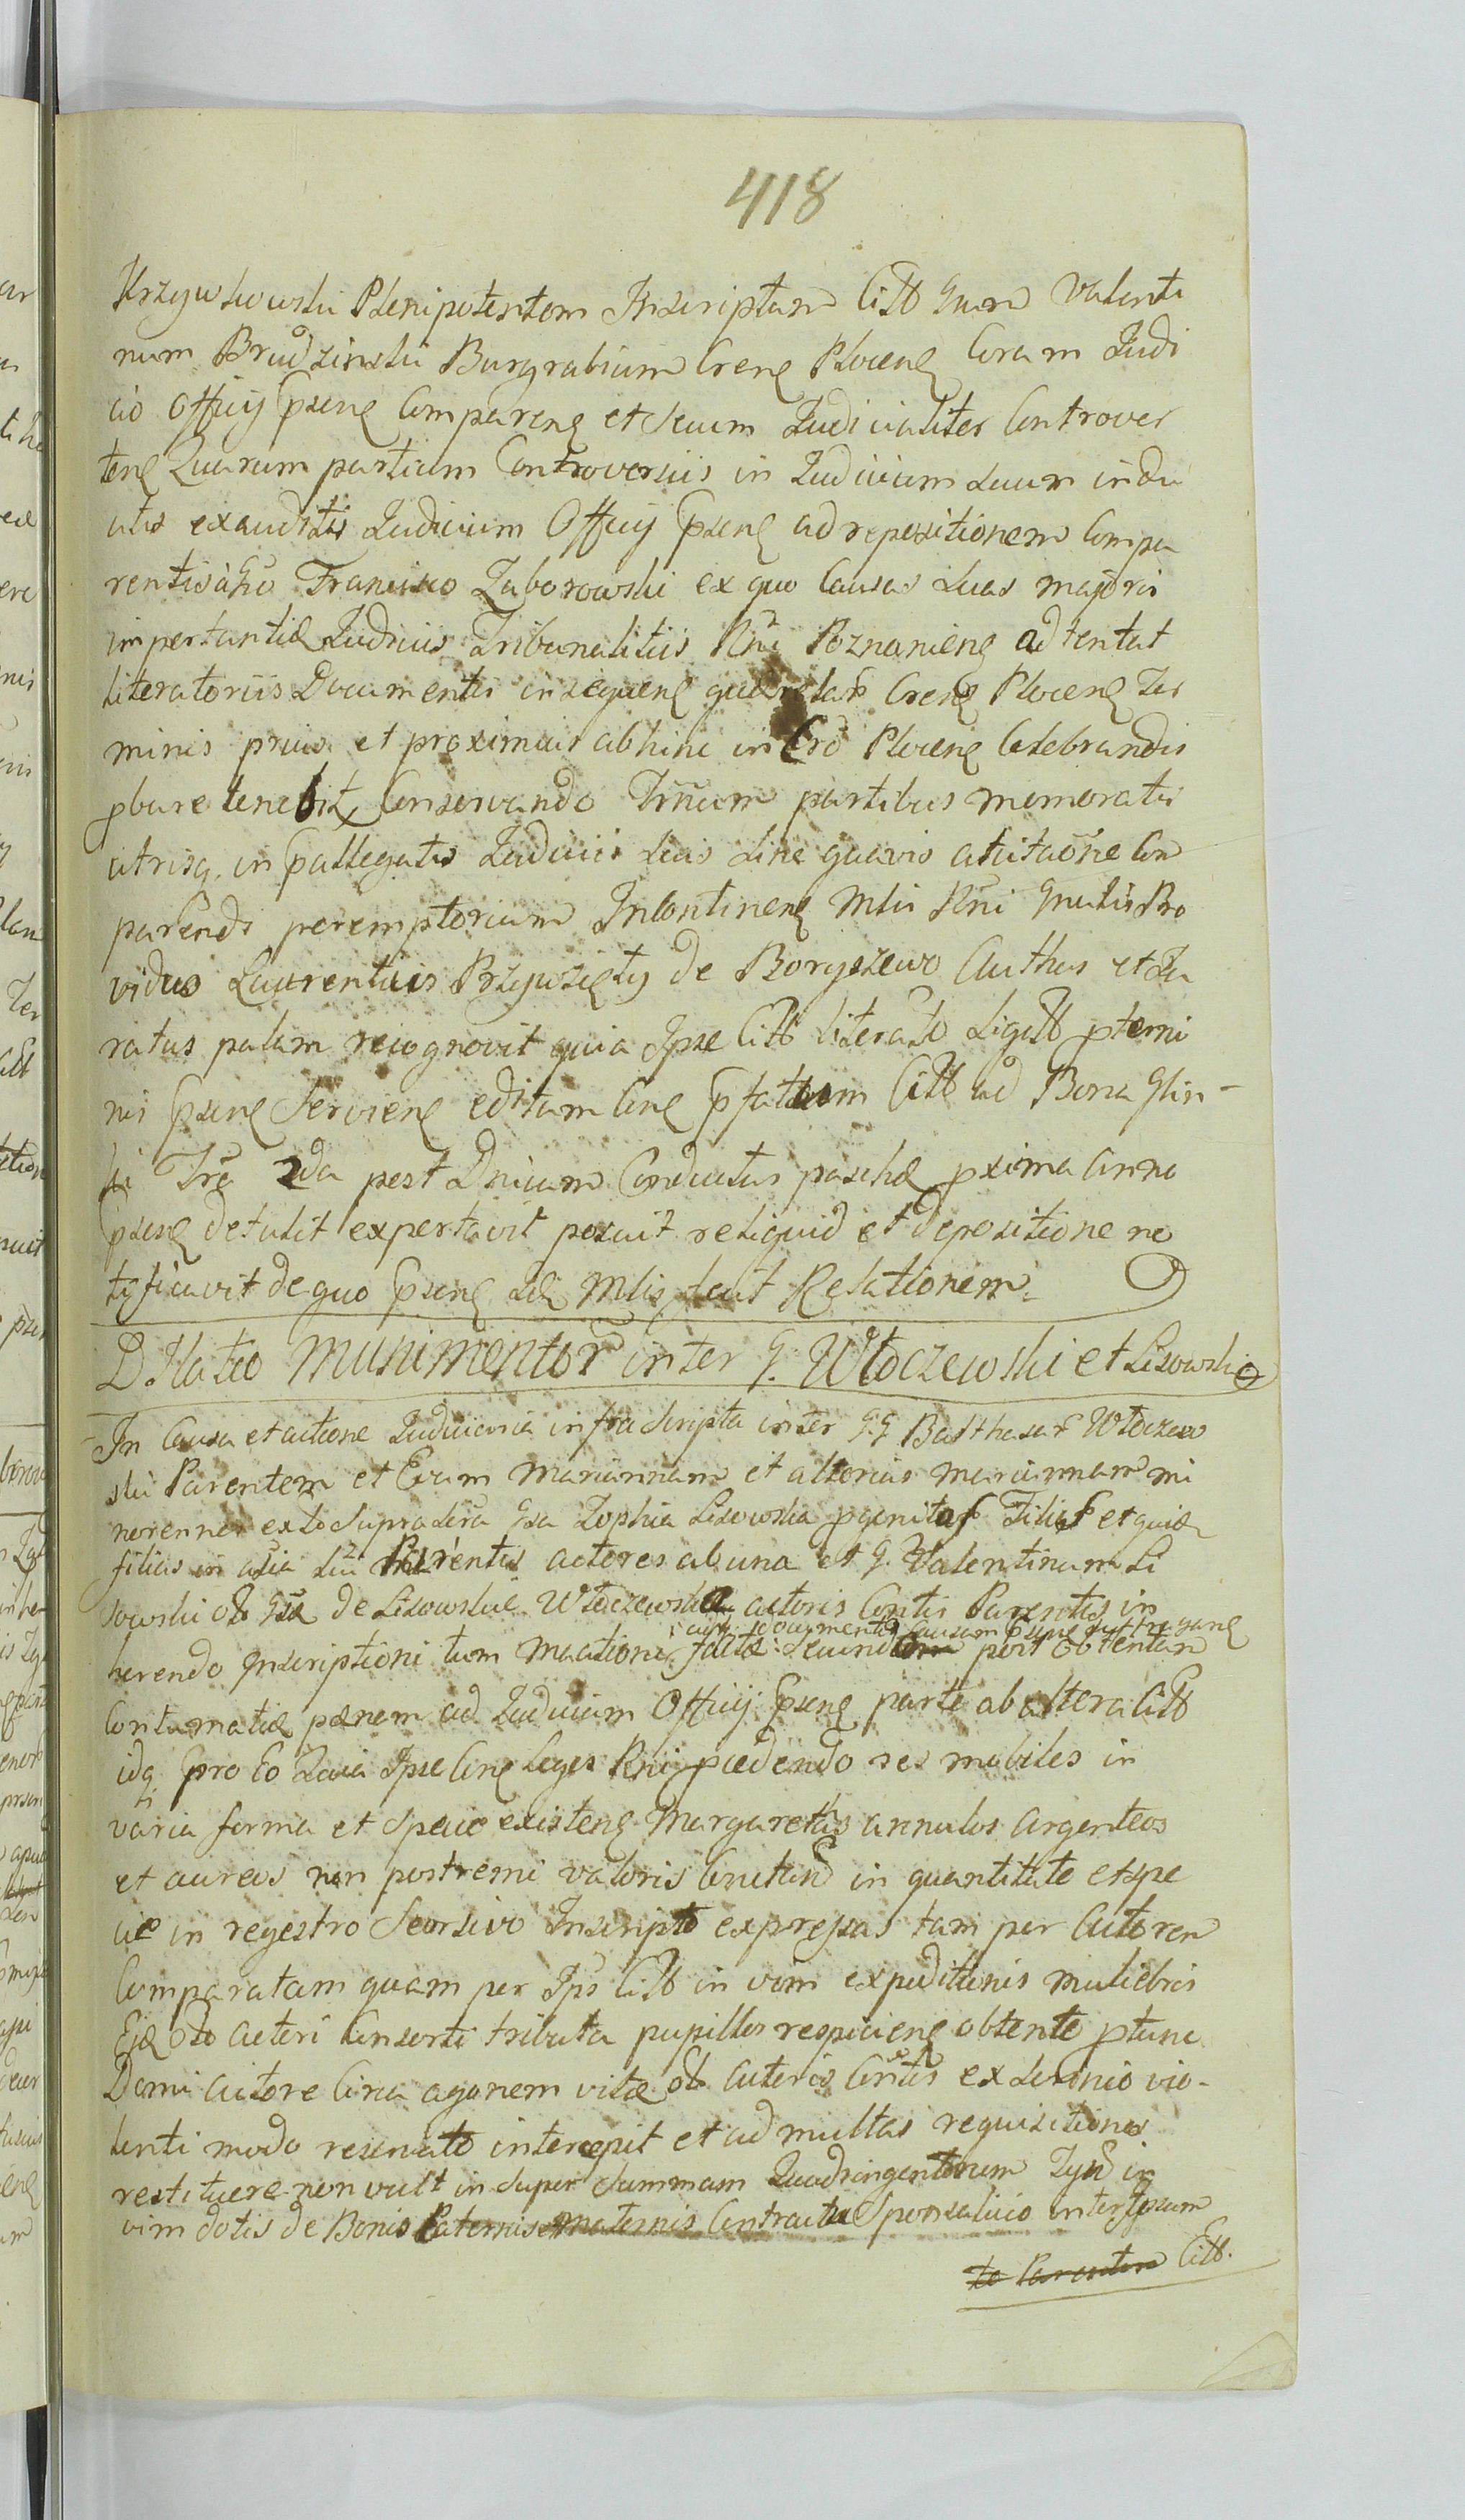 418
Krzywkowski Plenipotentem Inscriptum Citt Gnum Valenti
num Brudzinski Burgrabium Crenȩ Plocenȩ Coram Judi
cio Officij p̄senȩ Comparenȩ et secum Judicialiter Controver
tenȩ Quarum partium Controversiis in Judicium suum indu
ctis exauditis Judicium Officij p̄senȩ ad repositionem Compa
rentis à Gso Francisco Zaborowski ex quo Causas suas majoris
impertantiæ Judiciis Tribunalitiis Rni Poznanienȩ adtentat
literatoriis Documentis insequenȩ querelas Crenȩ Plocenȩ Ter
minis prius et proximius abhinc in Cro Plocenȩ Celebrandis
pbare tenebit, Conservando Trnum partibus memoratis
utrisq. in p̄allegatis Judiciis suis sine quavis atitacōne Com
parendi peremptorium Incontinenȩ Mlis Rni Gnalis Pro
vidus Laurentius Przywzięty de Boryszewo Authus et Ju
ratus palam recognovit quia Ipse Citt Literato Sigill ptermi
nis p̄senȩ Servienȩ editam Cenȩ p̄fatum Citt ad Bona Glin-
ki Tre 2da post Dnicam Conductus paschæ pxima Anno
p̄senȩ detulit exportavit posuit reliquid et depositione no
tificavit de quo p̄senȩ sui Mlis fecit Relationem.
D. Katio Munimentor inter G. Włoczewski et Lisowski
In Causa et actione Judiciaria infra scripta inter G.G. Balthasar Włoczew
ski Parentem et Evam Mariannam et alterius Mariannam mi
norennes exto supra scra Gsa Zophia Lisowska pgenitas Filias et quidȩ
filias in assia sui Parentis actores ab una et G. Valentinum Li
sowski ob Gsæ de Lisowskie Włoczewska actoris Contis Parentis in
cujus documenta causam p̄senȩ
herendo Inscriptioni tum Mactione factæ: secundum post obtentam
Contumatiæ pænem ad Judicium Officij p̄senȩ parte ab altera Citt
idq pro Eo Quia Ipse Cenȩ Leges Rni p̄cedendo res mobiles in
varia forma et Specie existenȩ Margarethas annulos Argenteos
et aureos non postremi valoris Constand in quantitate et spe
cie in regestro Seorsivo Inscripto expressas tam per Actoren
Comparatam quam per Ips Citt in vim expeditionis muliebris
Ejæ olo Actori Consorti tributa pupillos respicienȩ obtente ptunc
Domi Actore Circa agonem vitæ ob Actoris Contis ex Scrinio vio-
lenti modo reserato intercepit et ad multas requisitiones
restituere non vult in super summam Quadringentorum Tynf in
vim dotis de Bonis Paternis maternis Contractu Sponsalicio inter Ipsum
Citt.